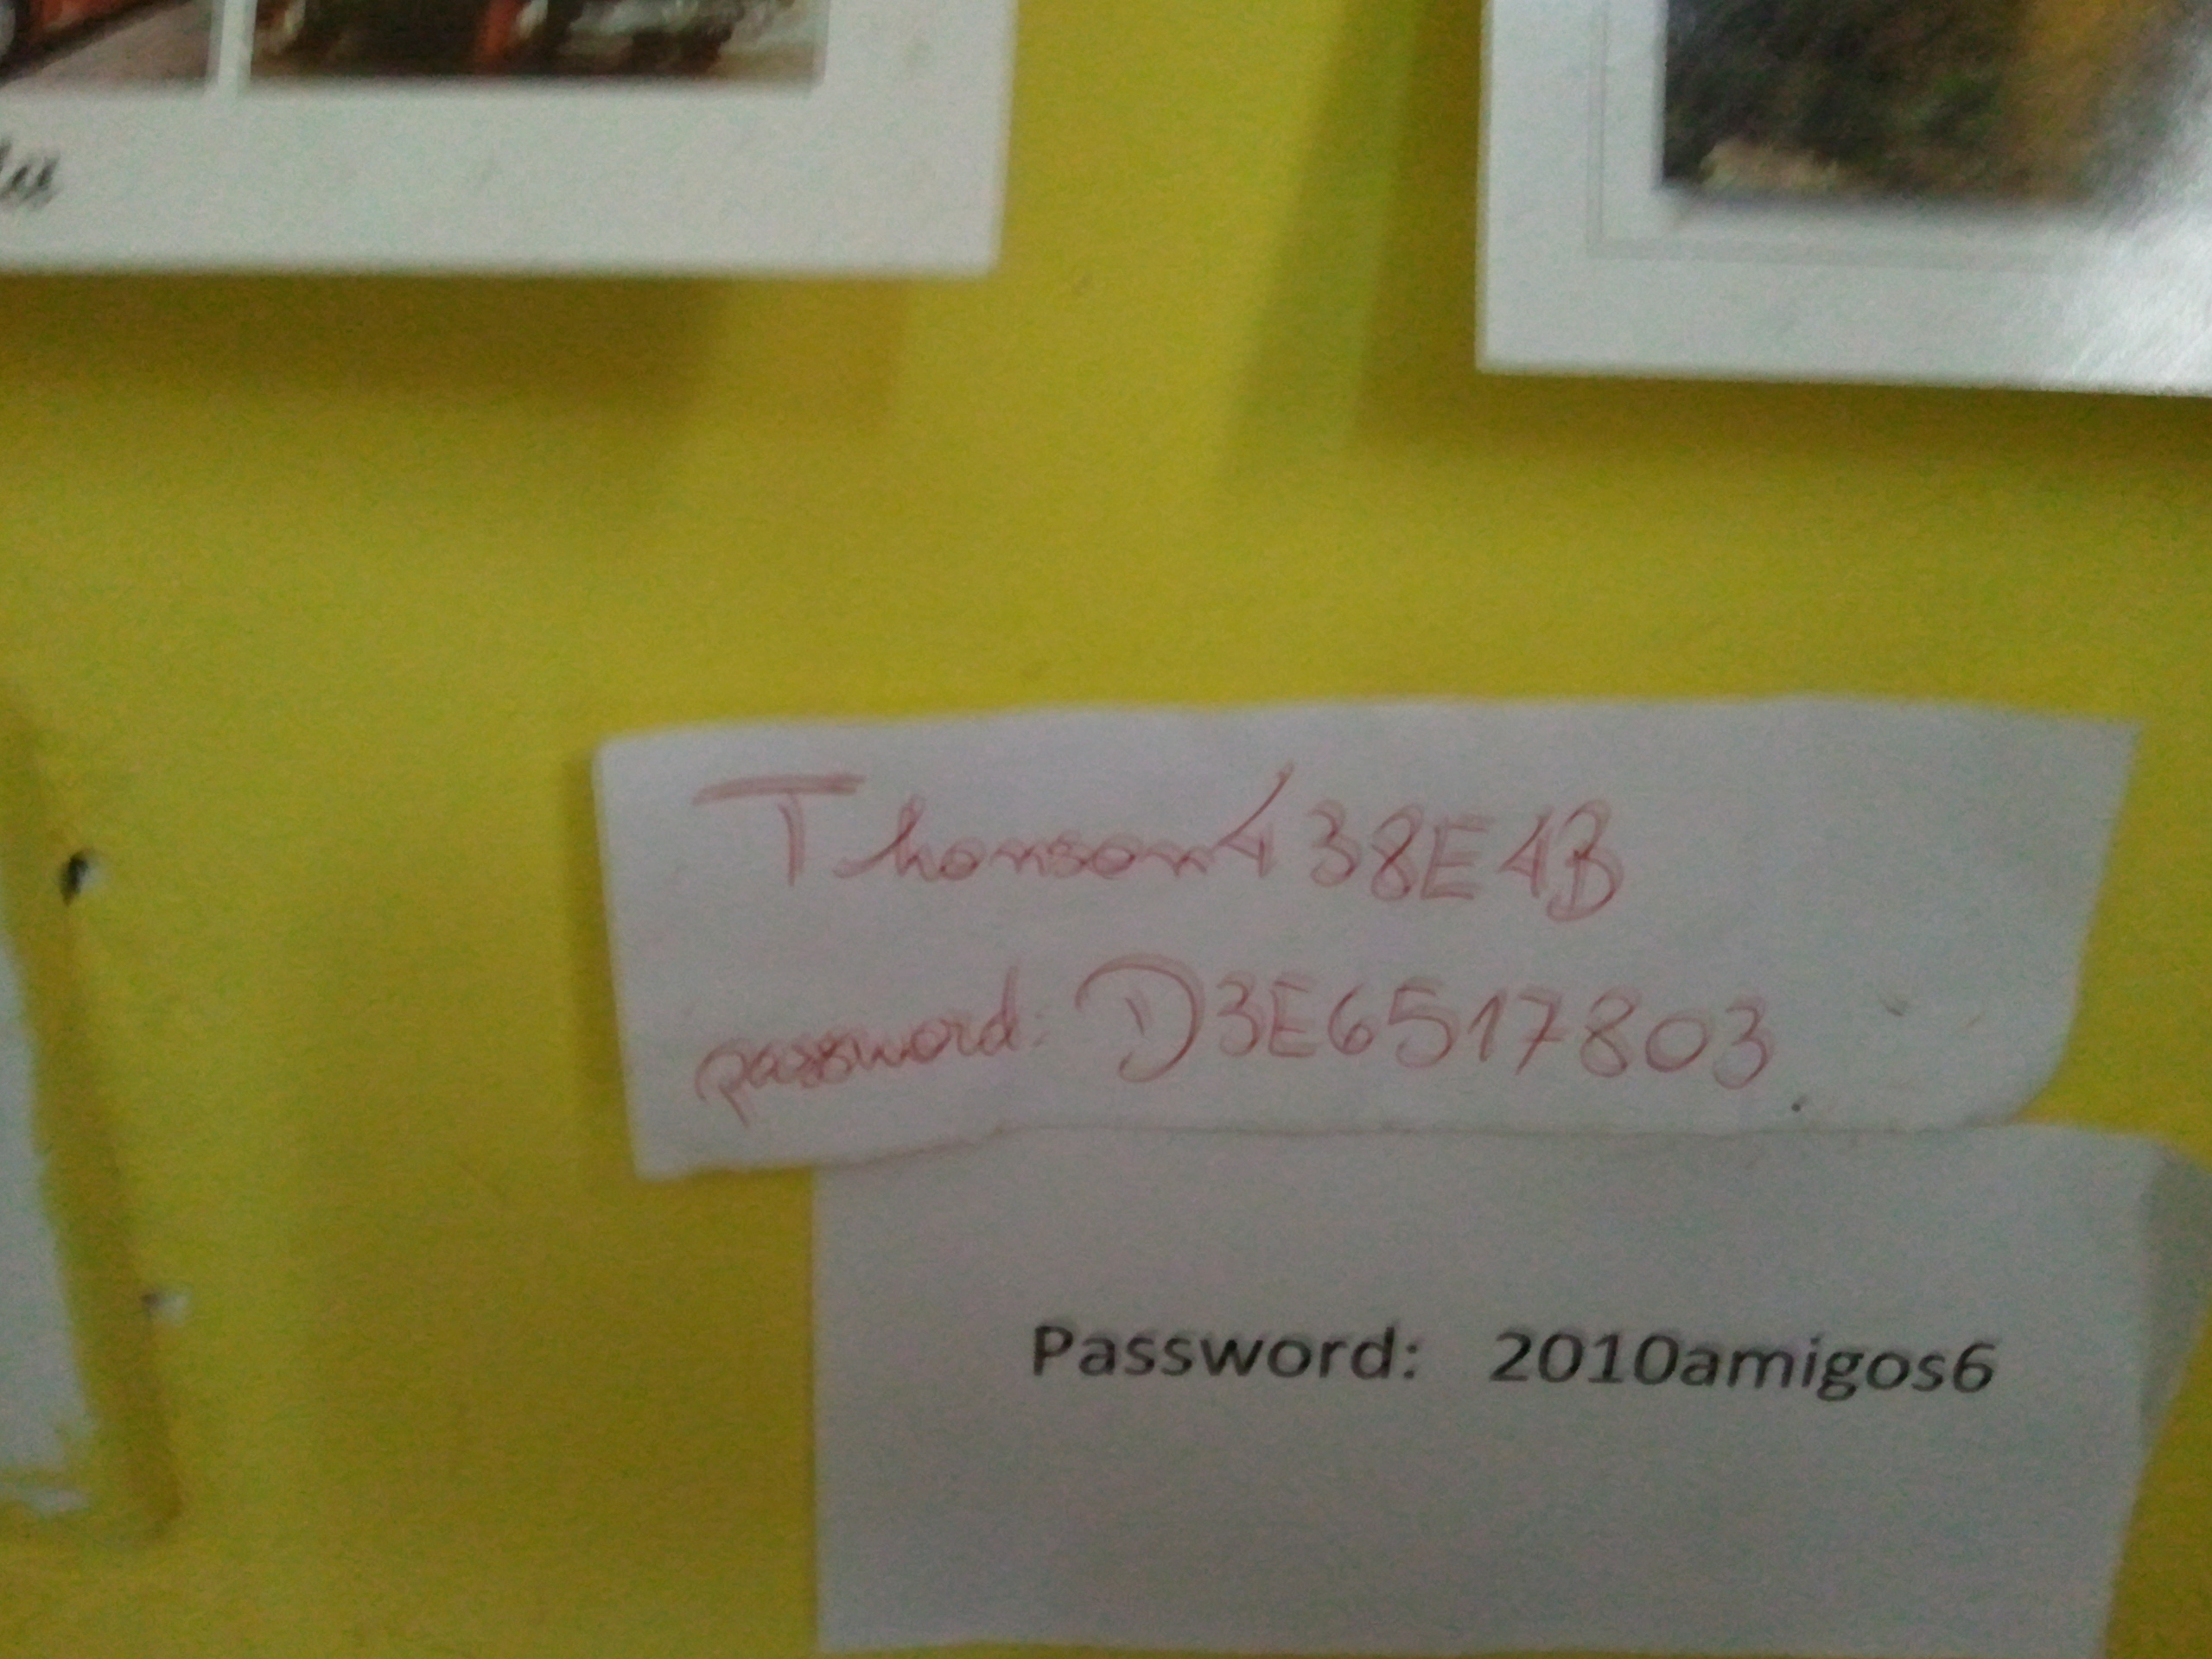 Thonson438E1B
password: D3E6517803
Password: 2010amigos6